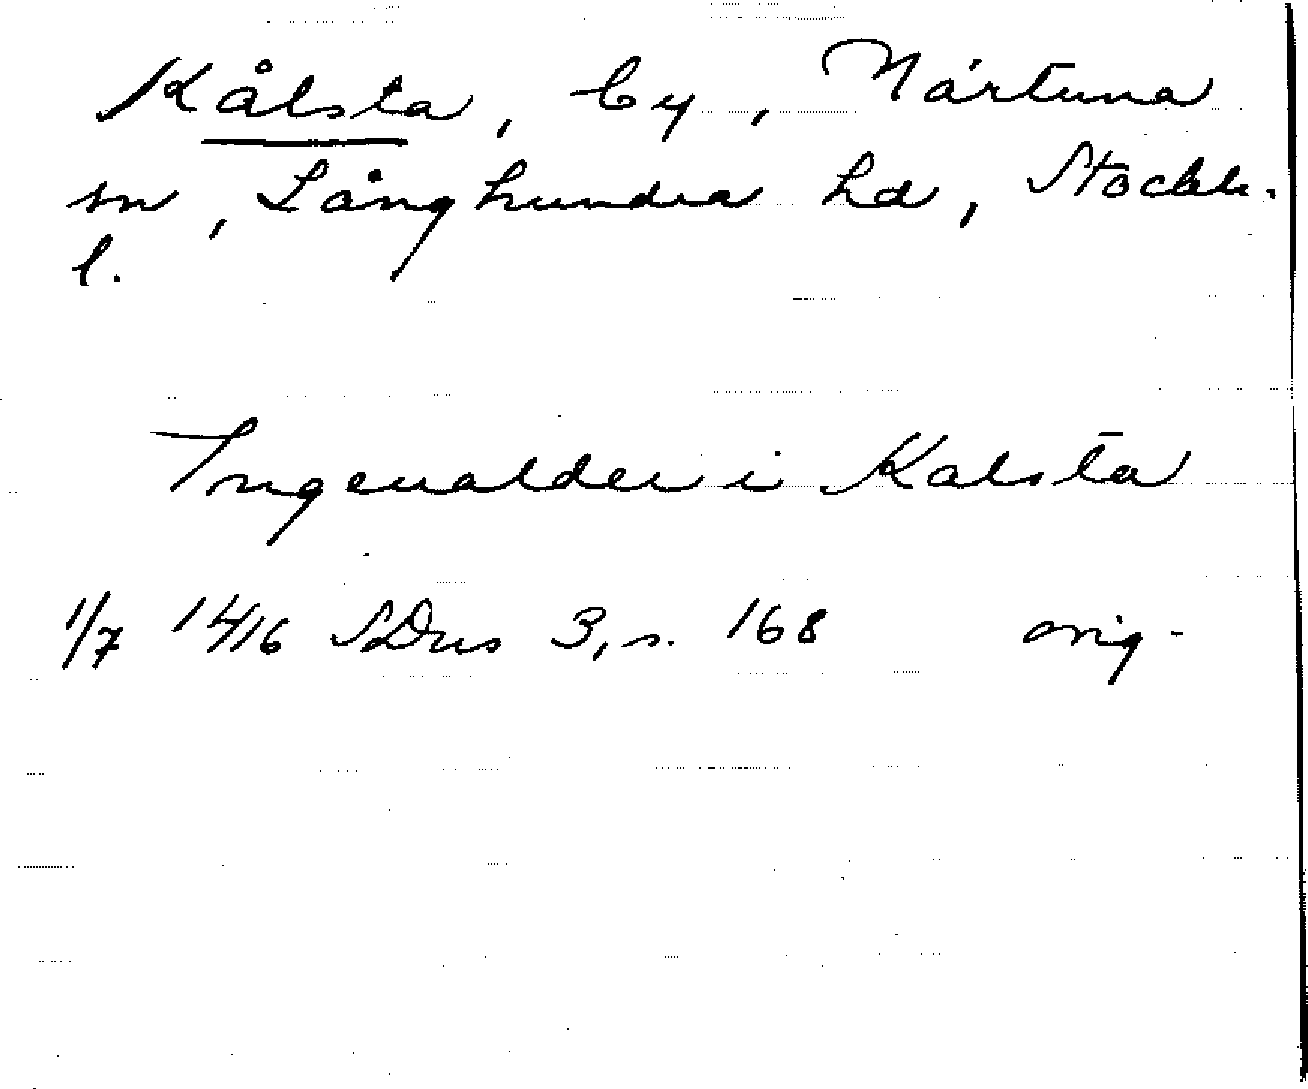 Kålsta, by, Närtuna
sn, Långhundra hd, Stockh.
l.
Ingeualder i Kalsta
1/7 1416 SDns 3, s. 168 orig.